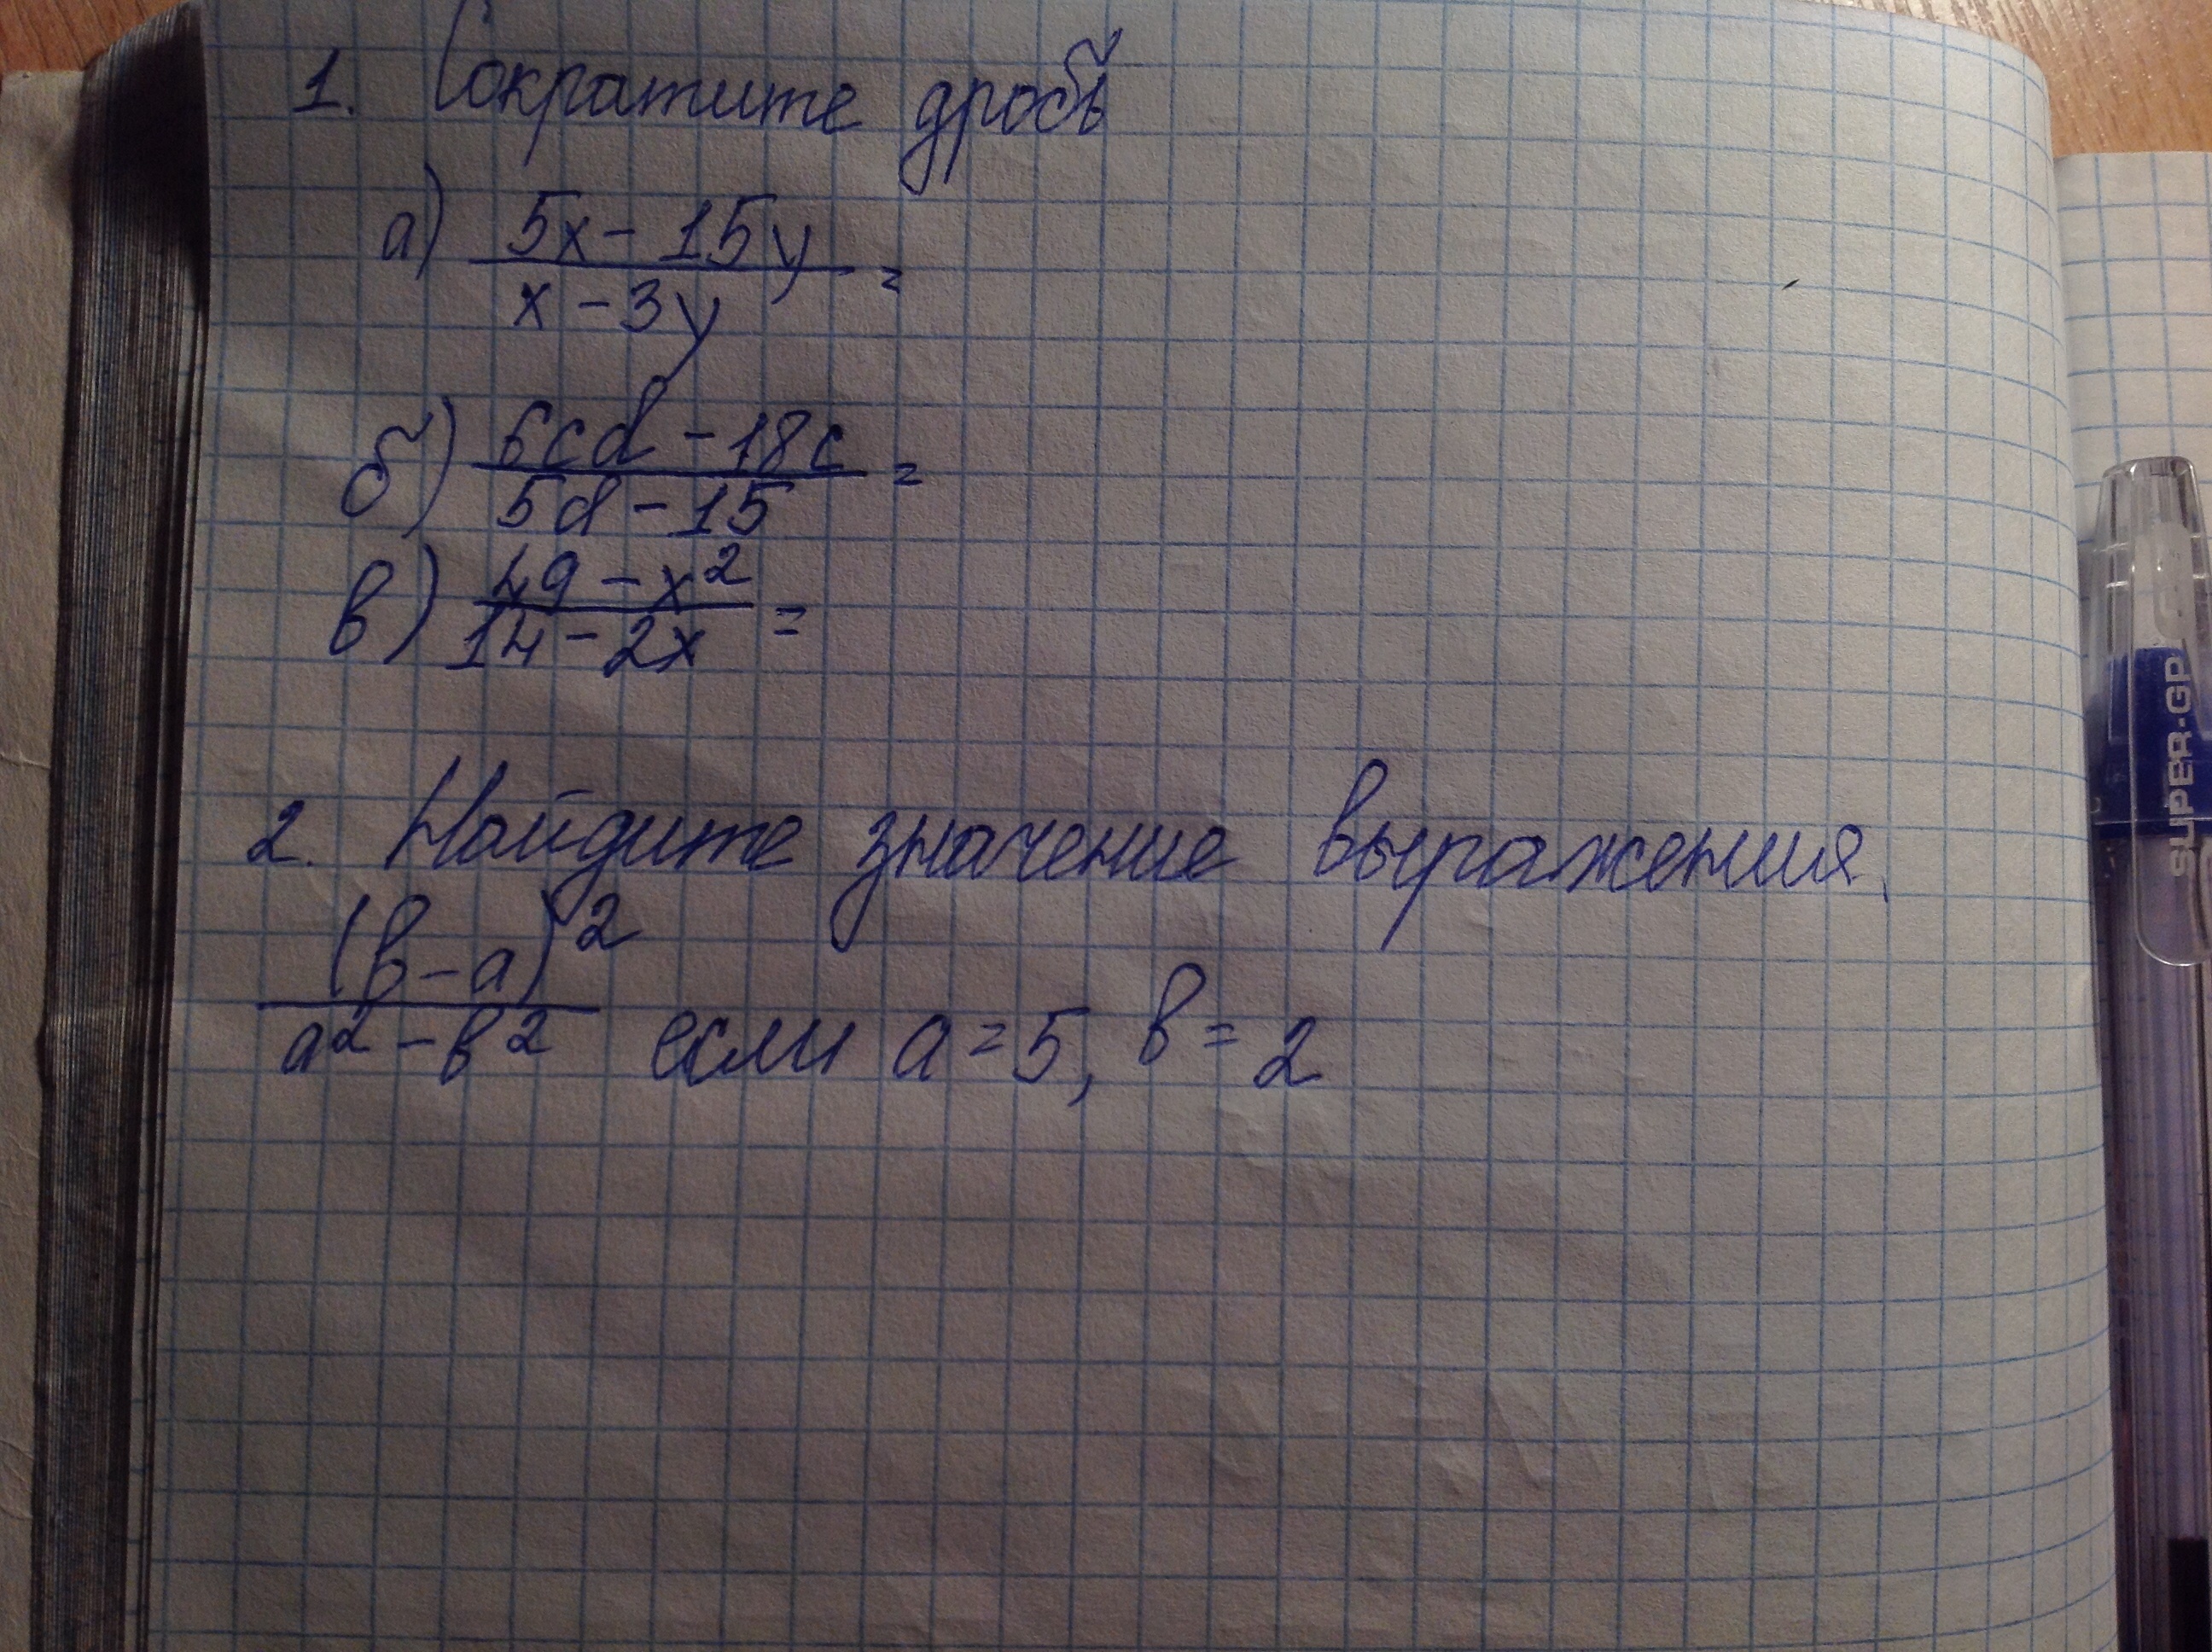 1. Сократите дробь
а) 5x - 15y
x - 3y =
б) 6cd - 18c
5d - 15 =
в) 49 - x²
14 - 2x =
2. Найдите значение выражения.
(в - а)²
а² - в² если а = 5, в = 2
SUPER-GP